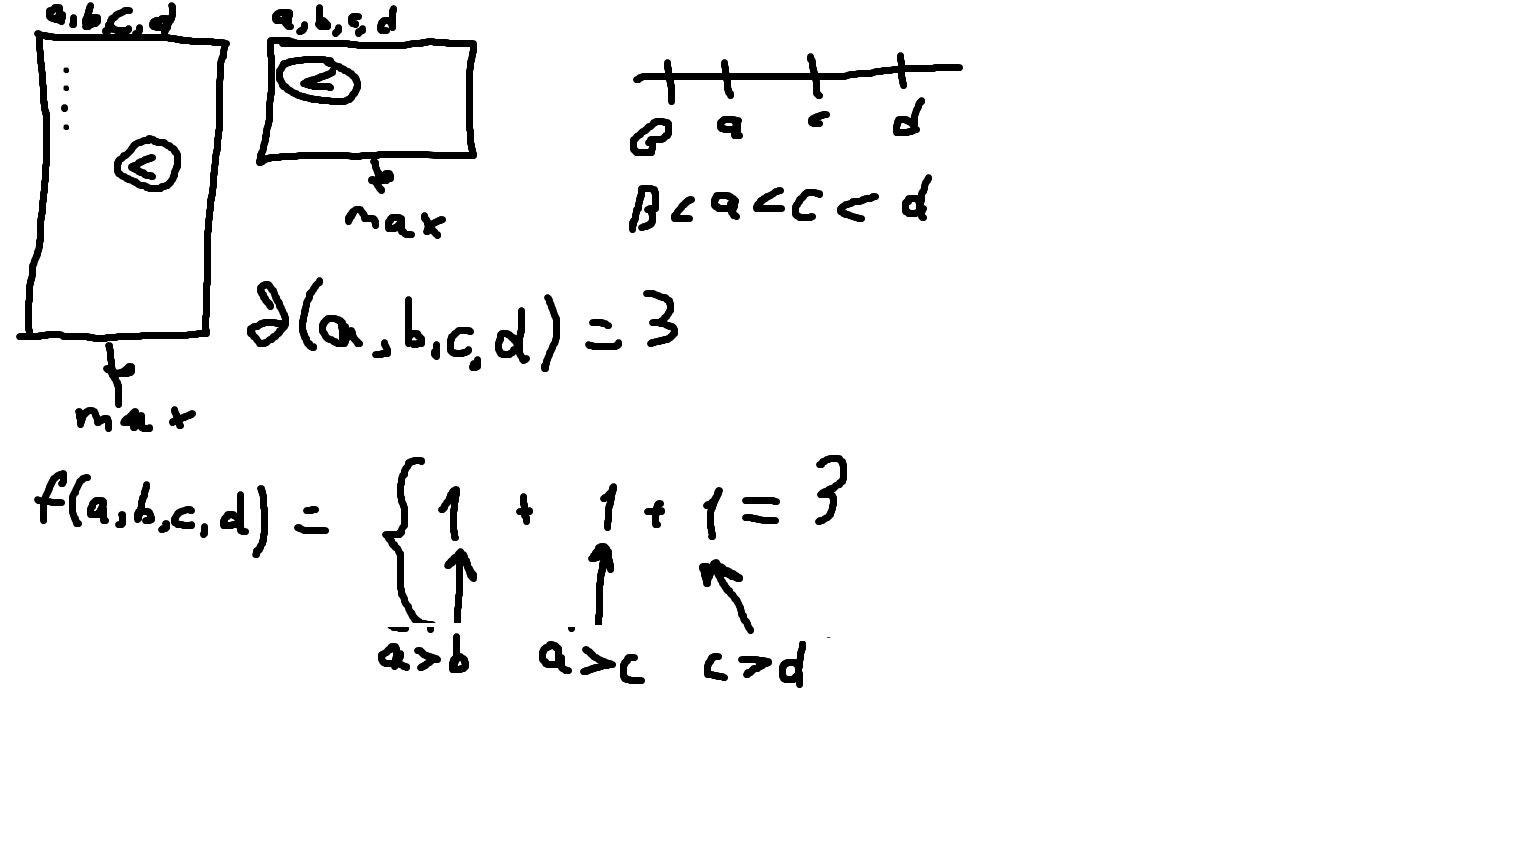 a,b,c,d
<
max
a,b,c,d
<
max
a c d
B < a < c < d
∂(a,b,c,d) = 3
f(a,b,c,d) = { 1 + 1 + 1 = 3
a>b a>c c>d